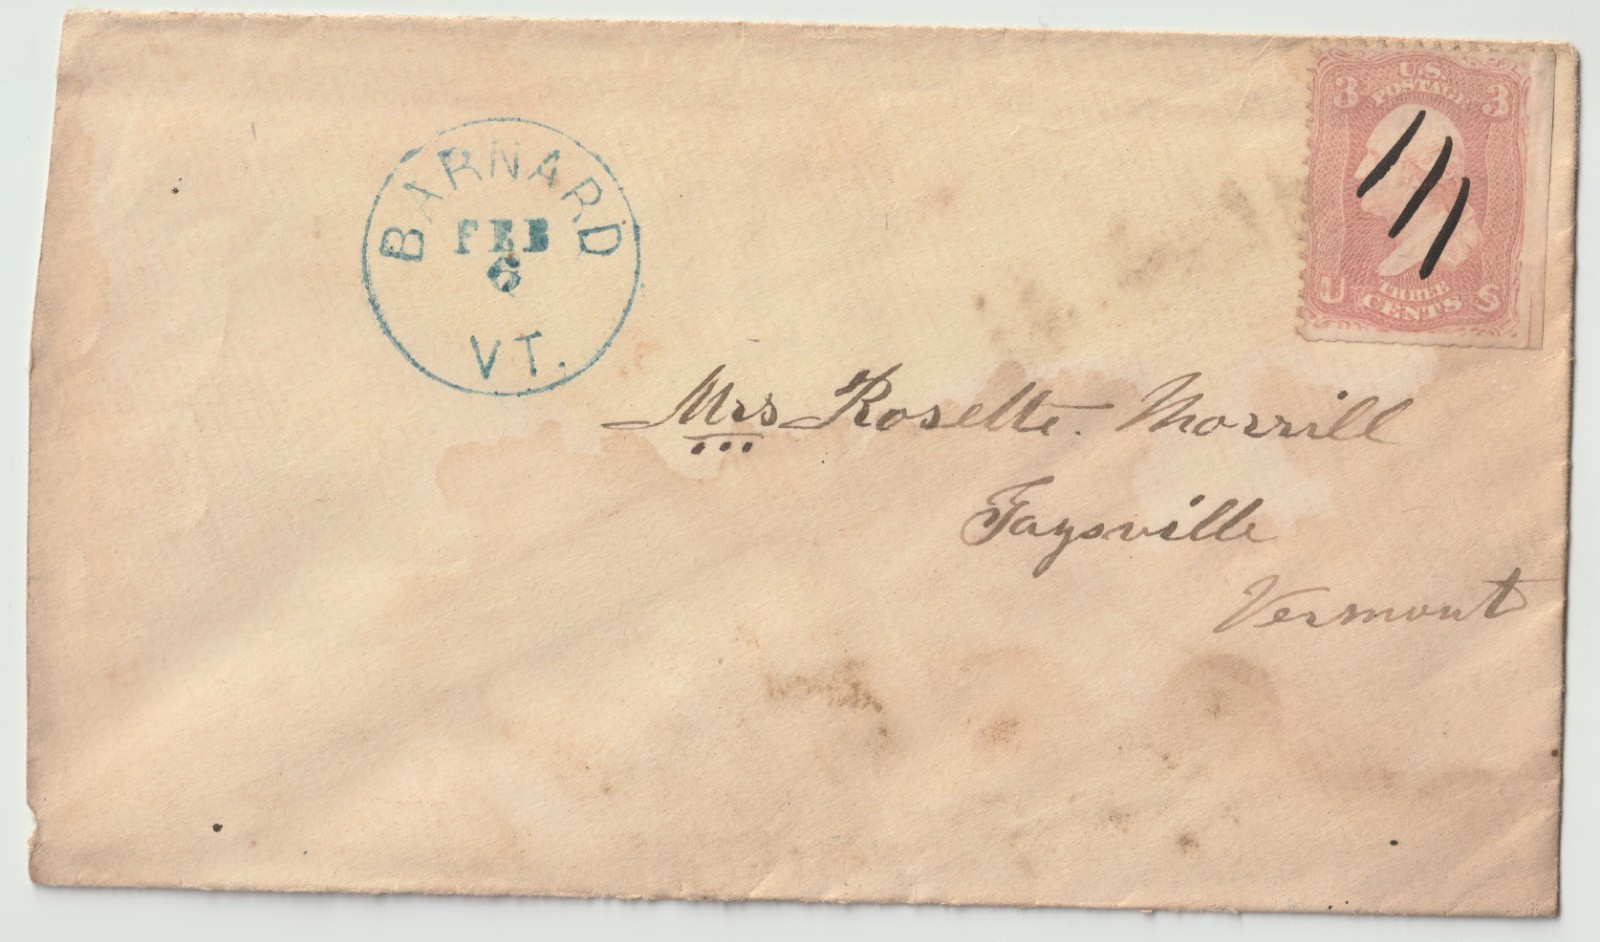 BARNARD
FEB
6
VT.
U.S.
POSTAGE
3 3
THREE
CENTS
U S
Mrs Rosette Morrill
Gaysville
Vermont